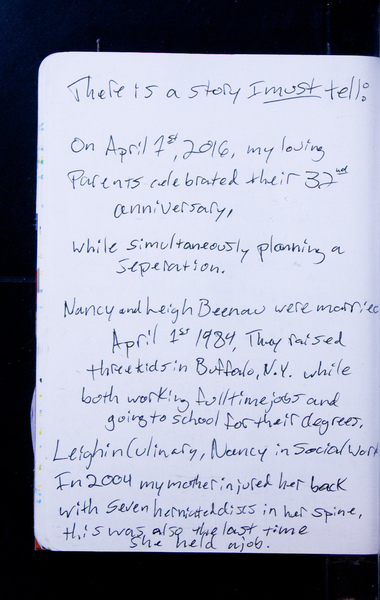 There is a story I must tell:
On April 1st, 2016, my loving
Parents celebrated their 32nd
anniversary,
while simultaneously planning a
seperation.
Nancy and Leigh Beenau were married
April 1st 1984, They raised
three kids in Buffalo, N.Y. while
both working full time jobs and
going to school for their degrees,
Leigh in Culinary, Nancy in Social Work
In 2004 my mother injured her back
with seven herniated discs in her spine,
this was also the last time
she held a job.